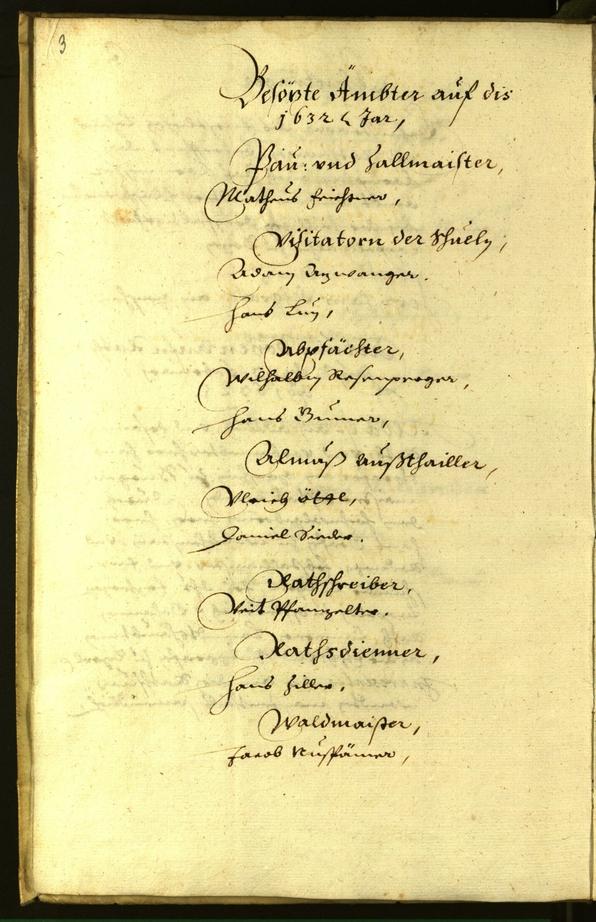 3
Besözte Ämbter auf dis
1632 Jar,
Pau: vnd Hallmaister,
Matheus Feichtner,
Visitatorn der Schueln,
Adam Anwanger.
Hans Lun,
Abpfächter,
Wilhalbm Rosenperger,
Hans
Almuß Außthailler,
Vlrich
Daniel Sieder.
Rathschreiber,
Veit Pfanzelter.
Rathsdienner,
Hans Ziller.
Waldmaister,
Jacob